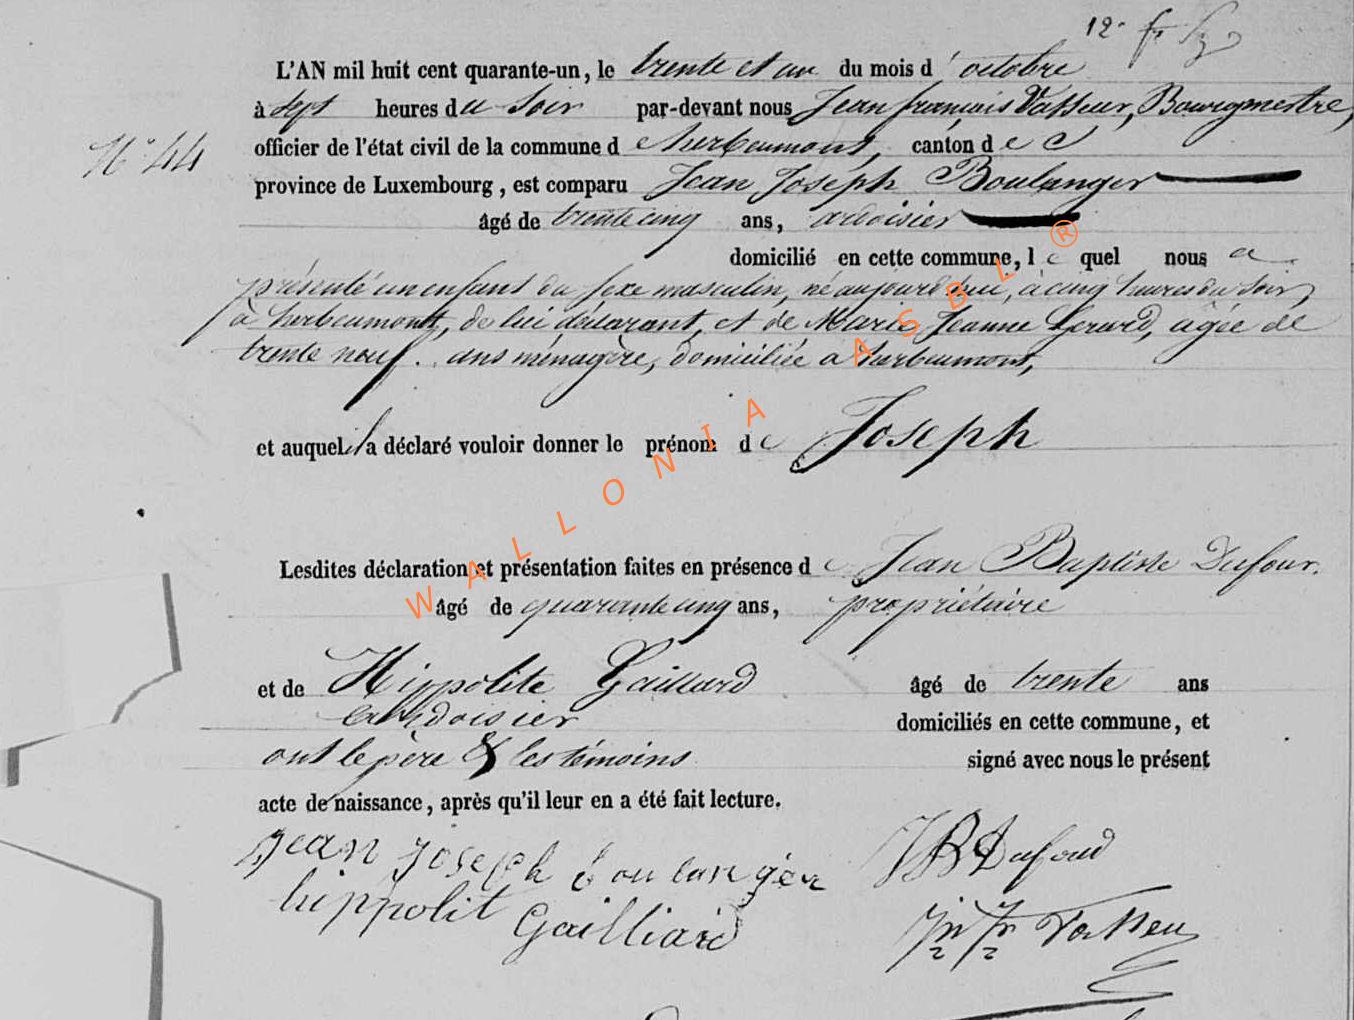 12.
L'AN mil huit cent quarante-un, le trente et un du mois d'octobre
à sept heures du soir par-devant nous Jean françois Vasseur, Bourgmestre,
N° 44
officier de l'état civil de la commune d'herbeumont, canton de
province de Luxembourg, est comparu Jean Joseph Boulanger
âgé de trente cinq ans, ardoisier
domicilié en cette commune, lequel nous a
présenté un enfant du sexe masculin, né aujourd'hui, à cinq heures du soir,
à herbeumont, de lui déclarant, et de Marie Jeanne Gerard, agée de
trente neuf ans ménagère, domiciliée à herbeumont,
et auquel il a déclaré vouloir donner le prénom de Joseph
Lesdites déclaration et présentation faites en présence de Jean Baptiste Dufour.
âgé de quarante cinq ans, propriétaire
et de Hippolite Gaillard âgé de trente ans
ardoisier domiciliés en cette commune, et
ont le père & les témoins signé avec nous le présent
acte de naissance, après qu'il leur en a été fait lecture.
jean joseph boulanger JB Dufour
hippolit Gailliard Jn Fr Vasseur
WALLONIA ASBL ®